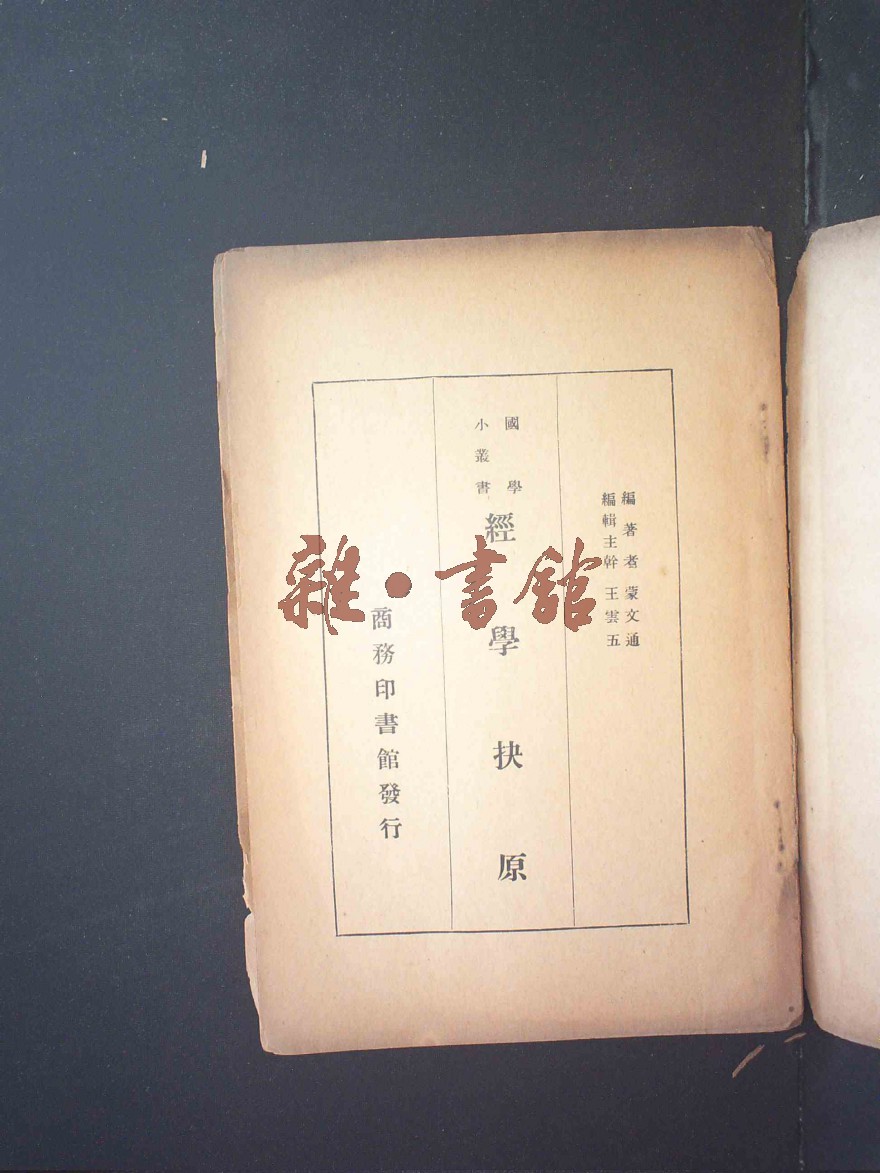 編著者 蒙文通
編輯主幹 王雲五
國學
小叢書
經學抉原
商務印書館發行
雜·書館